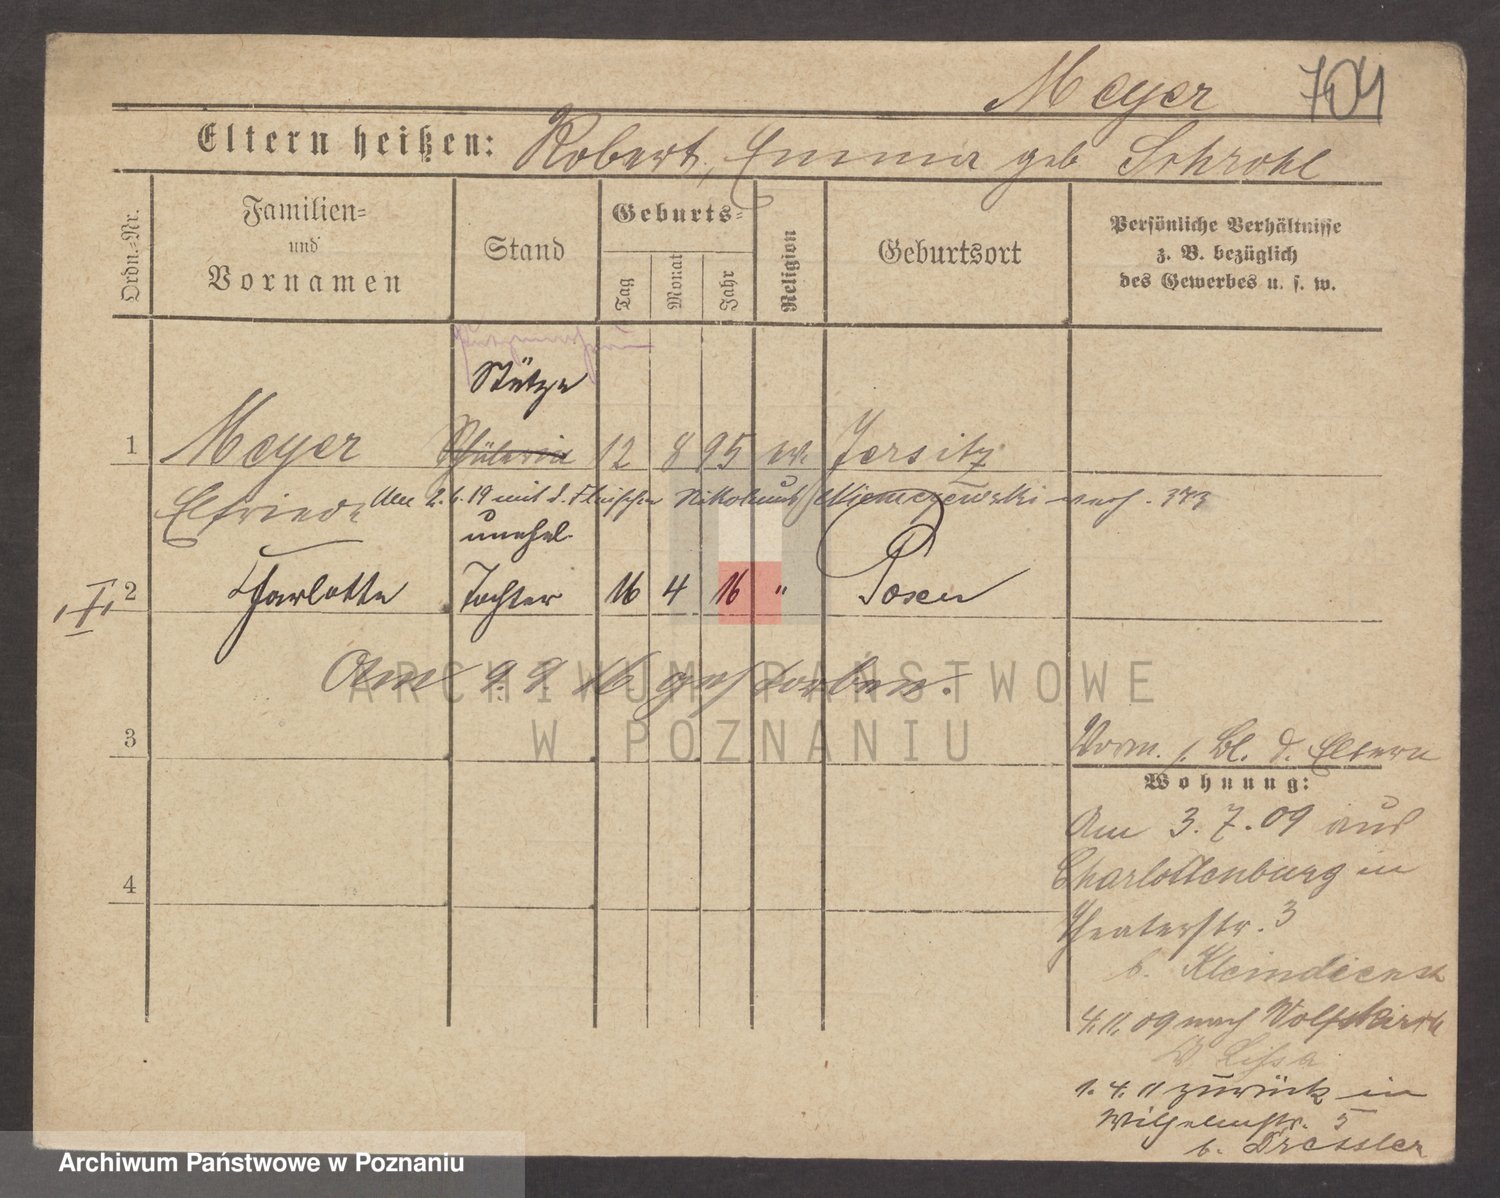 Meyer 704
Eltern heißen: Robert, Emma geb Schrohl
Ordn.-Nr.
Familien-
und
Vornamen
Stand
Geburts-
Tag
Monat
Jahr
Religion
Geburtsort
Persönliche Verhältnisse
z. B. bezüglich
des Gewerbes u. s. w.
Stütze
1 Meyer Schülerin 12 8 95 ev. Jersitz
Elfriede Am 2.6.19 mit d. Fleischer Nikolaus verh. 373
unehel.
2 Charlotte Tochter 16 4 16 " Posen
Am 9.9.16 gestorben.
3
Vorm. s. Bl. d. Eltern
Wohnung:
Am 3.7.09 aus
Charlottenburg in
4
Theaterstr. 3
b. Kleindienst
4.11.09 nach Wolfskirch
Lissa
1.4.11 zurück in
Wilhelmstr. 5
b. Dressler
ARCHIWUM PAŃSTWOWE
W POZNANIU
Archiwum Państwowe w Poznaniu